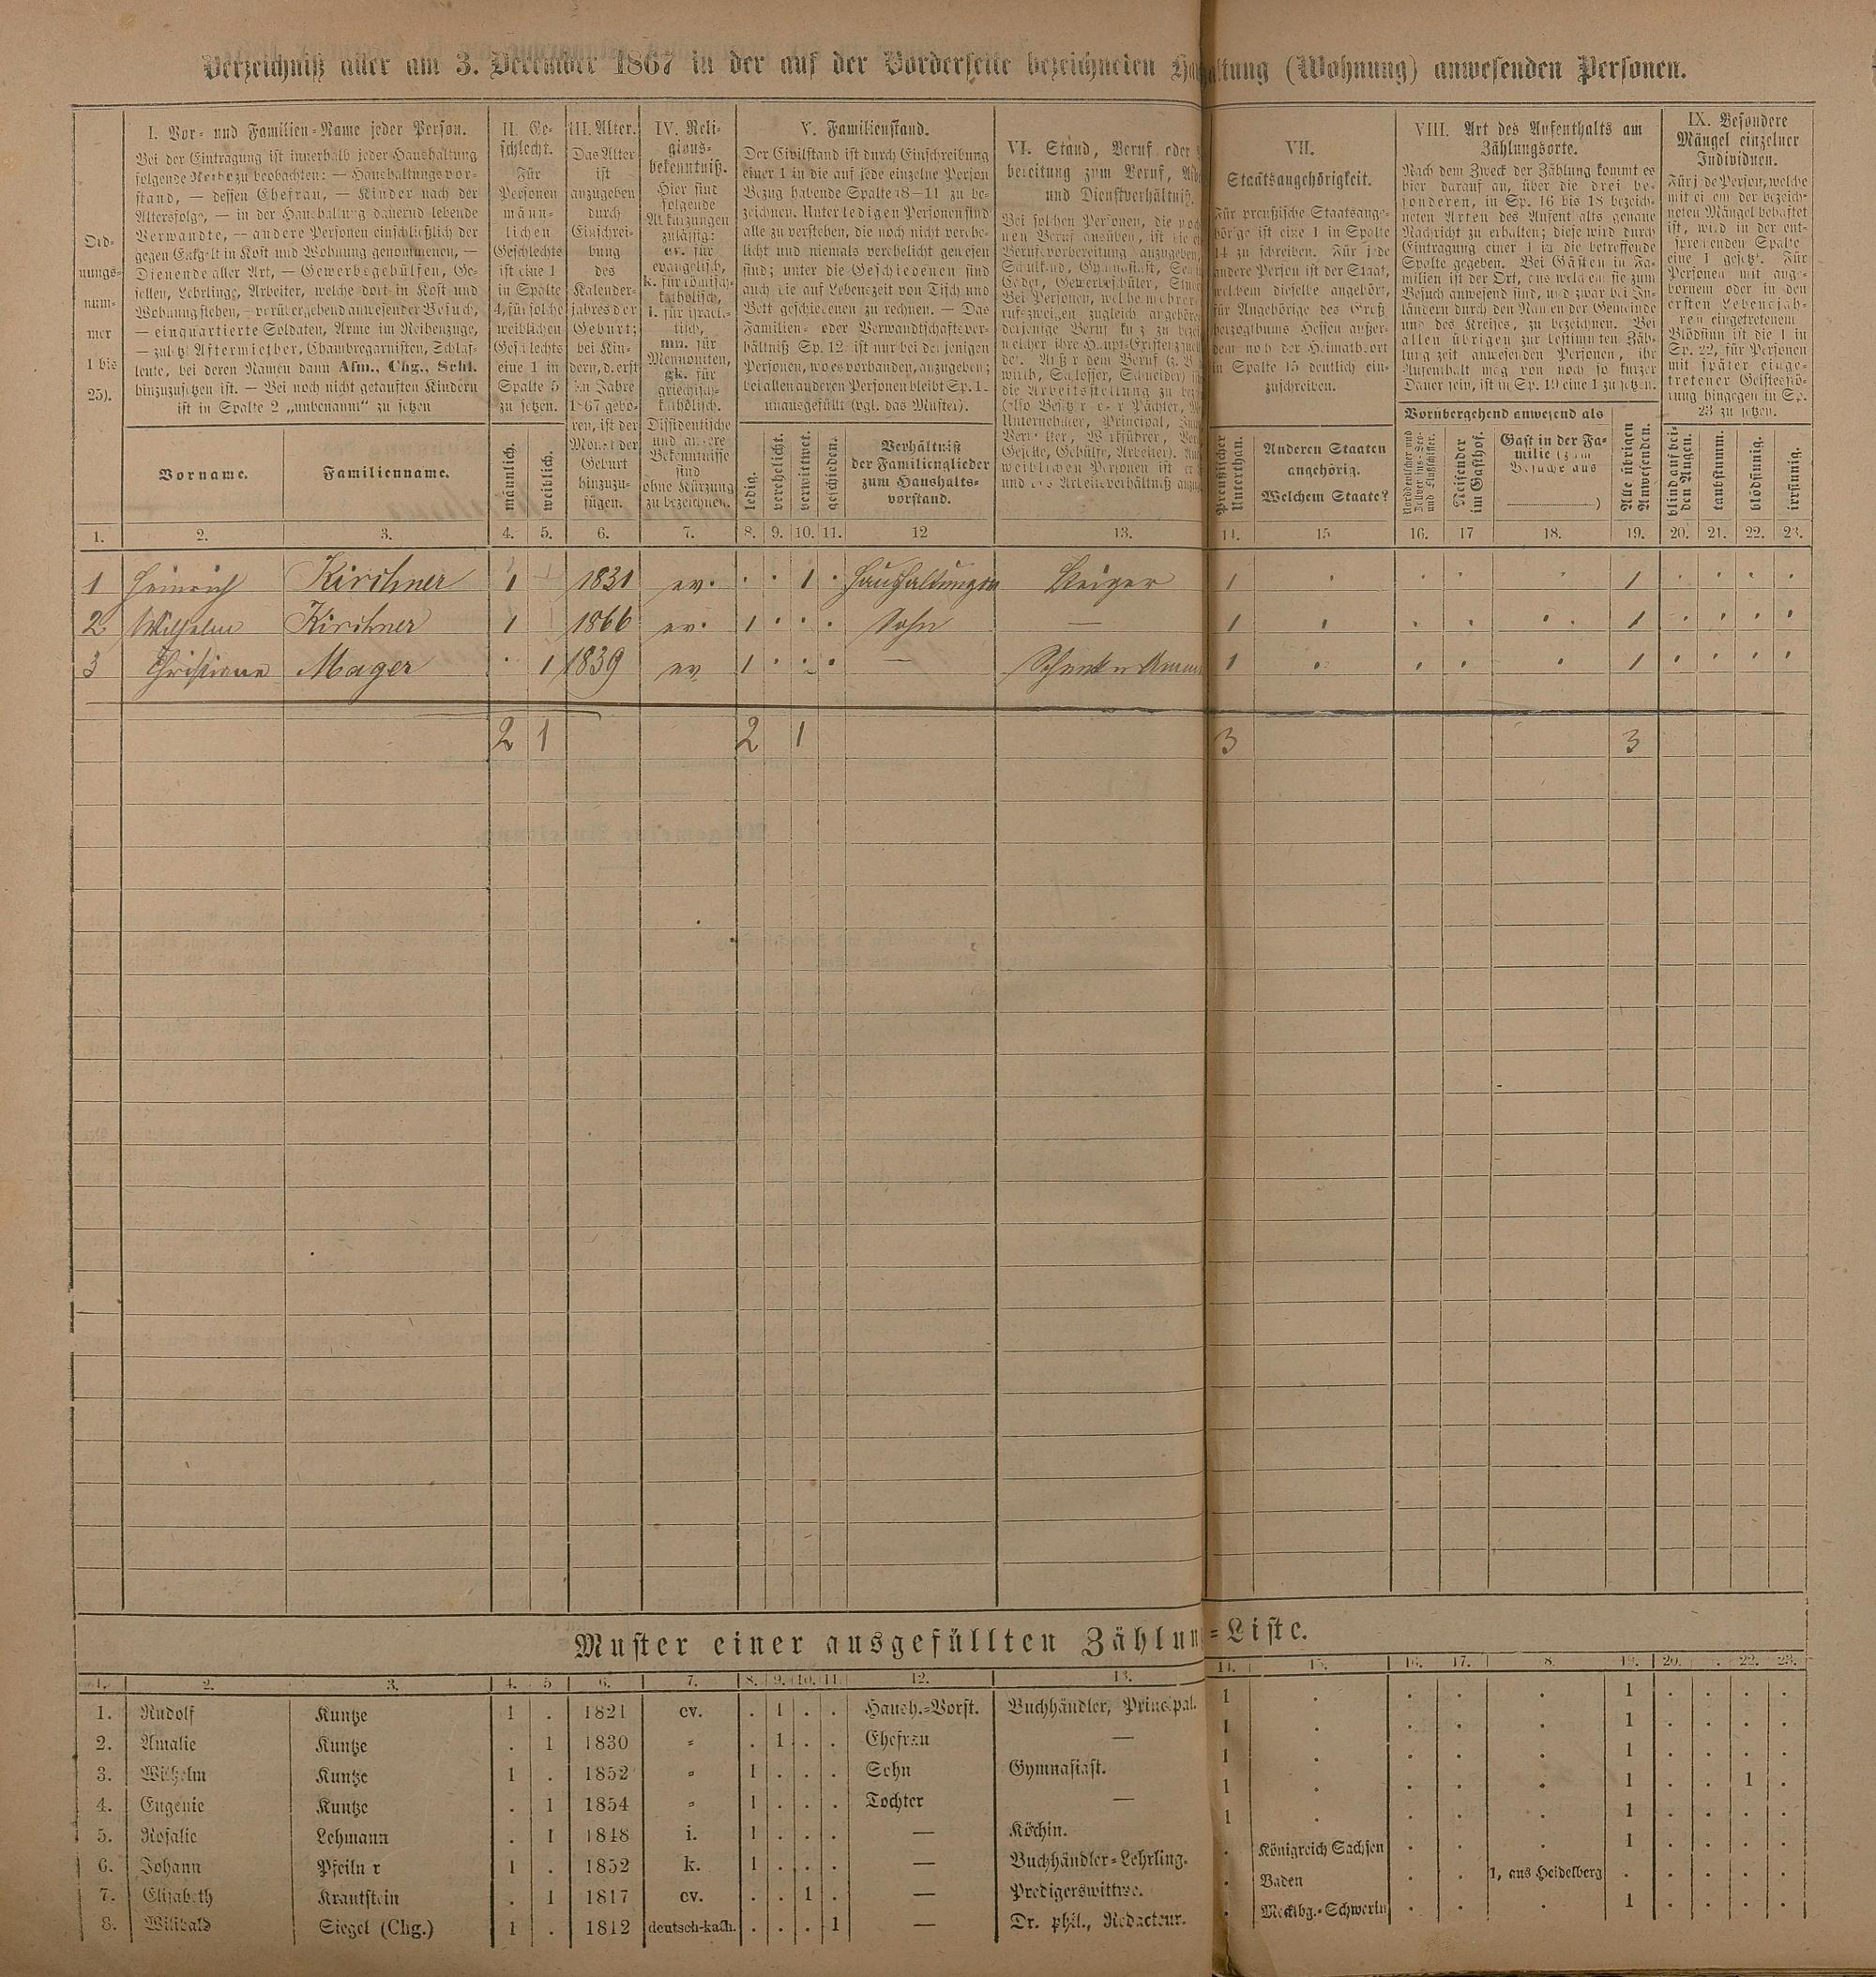 Verzeichniß aller am 3. December 1867 in der auf der Vorderseite bezeichneten Haushaltung (Wohnung) anwesenden Personen.
Ordnungsnummer 1 bis 25).
I. Vor- und Familien-Name jeder Person.
Bei der Eintragung ist innerhalb jeder Haushaltung
folgende Reihe zu beobachten: — Haushaltungsvor-
stand, — dessen Ehefrau, — Kinder nach der
Altersfolge, — in der Haushaltung dauernd lebende
Verwandte, — andere Personen einschließlich der
gegen Entgelt in Kost und Wohnung genommenen, —
Dienende aller Art, — Gewerbsgehülfen, Ge-
sellen, Lehrlinge, Arbeiter, welche dort in Kost und
Wohnung stehen, — vorübergehend anwesender Besuch,
— einquartierte Soldaten, Arme im Reihenzuge,
— zuletzt Aftermiether, Chambregarnisten, Schlaf-
leute, bei deren Namen dann Afm., Chg., Schl.
hinzuzusetzen ist. — Bei noch nicht getauften Kindern
ist in Spalte 2 „unbenannt" zu setzen
Vorname.
Familienname.
II. Ge-
schlecht.
Für
Personen
männ-
lichen
Geschlechts
ist eine 1
in Spalte
4, für solche
weiblichen
Geschlechts
eine 1 in
Spalte 5
zu setzen.
männlich.
weiblich.
III. Alter.
Das Alter
ist
anzugeben
durch
Einschrei-
bung
des
Kalender-
jahres der
Geburt;
bei Kin-
dern, d. erst
im Jahre
1867 gebo-
ren, ist der
Monat der
Geburt
hinzuzu-
fügen.
IV. Reli-
gions-
bekenntniß.
Hier sind
folgende
Abkürzungen
zulässig:
ev. für
evangelisch,
k. für römisch-
katholisch,
i. für israeli-
tisch,
mn. für
Mennoniten,
gk. für
griechisch-
katholisch.
Dissidentische
und andere
Bekenntnisse
sind
ohne Kürzung
zu bezeichnen.
V. Familienstand.
Der Civilstand ist durch Einschreibung
einer 1 in die auf jede einzelne Person
Bezug habende Spalte (8—11) zu be-
zeichnen. Unter ledigen Personen sind
alle zu verstehen, die noch nicht verehe-
licht und niemals verehelicht gewesen
sind; unter die Geschiedenen sind
auch die auf Lebenszeit von Tisch und
Bett geschiedenen zu rechnen. — Das
Familien- oder Verwandtschaftsver-
hältniß Sp. 12 ist nur bei denjenigen
Personen, wo es vorhanden, anzugeben;
bei allen anderen Personen bleibt Sp. 1.
unausgefüllt (vgl. das Muster).
ledig.
verehelicht.
verwittwet.
geschieden.
Verhältniß
der Familienglieder
zum Haushalts-
vorstand.
VI. Stand, Beruf oder
bereitung zum Beruf,
und Dienstverhältniß.
VII.
Staatsangehörigkeit.
Für preußische Staatsange-
hörige ist eine 1 in Spalte
14 zu schreiben. Für jede
andere Person ist der Staat,
welchem dieselbe angehört,
für Angehörige des Groß-
herzogthums Hessen außer-
dem noch der Heimathsort
in Spalte 15 deutlich ein-
zuschreiben.
Preußischer Unterthan.
Anderen Staaten
angehörig.
Welchem Staate?
VIII. Art des Aufenthalts am
Zählungsorte.
Nach dem Zweck der Zählung kommt es
hier darauf an, über die drei be-
sonderen, in Sp. 16 bis 18 bezeich-
neten Arten des Aufenthalts genaue
Nachricht zu erhalten; diese wird durch
Eintragung einer 1 in die betreffende
Spalte gegeben. Bei Gästen in Fa-
milien ist der Ort, aus welchem sie zum
Besuch anwesend sind, und zwar bei In-
ländern durch den Namen der Gemeinde
und des Kreises, zu bezeichnen. Bei
allen übrigen zur bestimmten Zäh-
lungszeit anwesenden Personen, ihr
Aufenthalt mag von noch so kurzer
Dauer sein, ist in Sp. 19 eine 1 zu setzen.
Vorübergehend anwesend als
Reisender im Gasthof.
Gast in der Fa-
milie (zum
Besuche aus
)
Alle übrigen Anwesenden.
IX. Besondere
Mängel einzelner
Individuen.
Für jede Person, welche
mit einem der bezeich-
neten Mängel behaftet
ist, wird in der ent-
sprechenden Spalte
eine 1 gesetzt. Für
Personen mit ange-
bornem oder in den
ersten Lebensjah-
ren eingetretenem
Blödsinn ist die 1 in
Sp. 22, für Personen
mit später einge-
tretener Geistesstö-
rung hingegen in Sp.
23 zu setzen.
blind auf bei-
den Augen.
taubstumm.
blödsinnig.
irrsinnig.
1. 2. 3. 4. 5. 6. 7. 8. 9. 10. 11. 12 13. 14. 15 16. 17 18. 19. 20. 21. 22. 23.
1 Heinrich Kirchner 1 1831 ev. . . 1 . Steiger 1 . . . . 1 . . . .
2 Wilhelm Kirchner 1 1866 ev. 1 . . . Sohn — 1 . . . . 1 . . . .
3 Christiane Mager . 1 1839 ev 1 . . . — 1 . . . . 1 . . . .
2 1 2 1 3 3
Muster einer ausgefüllten Zählungs-Liste.
1. 2. 3. 4. 5 6. 7. 8. 9. 10. 11. 12. 13. 14. 15. 16. 17. 8. 19. 20. . 22. 23.
1. Rudolf Kuntze 1 . 1821 ev. . 1 . . Haush.-Vorst. Buchhändler, Principal. 1 . . . . 1 . . . .
2. Amalie Kuntze . 1 1830 " . 1 . . Ehefrau — 1 . . . . 1 . . . .
3. Wilhelm Kuntze 1 . 1852 " 1 . . . Sohn Gymnasiast. 1 . . . . 1 . . . .
4. Eugenie Kuntze . 1 1854 " 1 . . . Tochter — 1 . . . . 1 . . 1 .
5. Rosalie Lehmann . 1 1848 i. 1 . . . — Köchin. 1 . . . . 1 . . . .
6. Johann Pfeilner 1 . 1852 k. 1 . . . — Buchhändler-Lehrling. . Königreich Sachsen . . . 1 . . . .
7. Elisabeth Krautstein . 1 1817 ev. . . 1 . — Predigerswittwe. . Baden . . 1, aus Heidelberg . . . . .
8. Wilibald Siegel (Chg.) 1 . 1812 deutsch-kath. . . . 1 — Dr. phil., Redacteur. . Mecklbg.-Schwerin . . . 1 . . . .